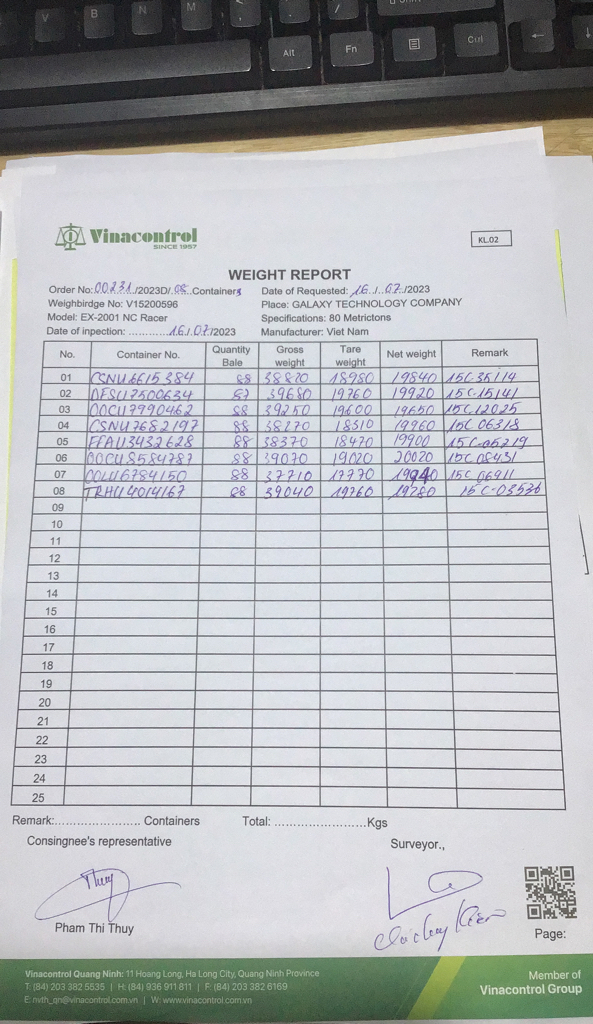 V B N M /
Alt Fn Ctrl
Vinacontrol
SINCE 1957
KL.02
WEIGHT REPORT
Order No: 00231/2023D/ 08 Containers Date of Requested: 16 / 07 /2023
Weighbirdge No: V15200596 Place: GALAXY TECHNOLOGY COMPANY
Model: EX-2001 NC Racer Specifications: 80 Metrictons
Date of inpection: ............16/07/2023 Manufacturer: Viet Nam
No. Container No. Quantity Bale Gross weight Tare weight Net weight Remark
01 CSNU6615384 88 38820 18980 19840 15C-35114
02 DFSU7500634 87 39680 19760 19920 15C-15141
03 OOCU7990462 88 39250 19600 19650 15C.12025
04 CSNU7682197 88 38270 18310 19960 15C 06318
05 FFAU3432628 88 38370 18470 19900 15C-05219
06 OOCU8584787 88 39070 19020 20020 15C 08431
07 OOLU6784150 88 37710 17770 19940 15C 06911
08 TRHU4014167 88 39040 19760 19280 15C-03536
09
10
11
12
13
14
15
16
17
18
19
20
21
22
23
24
25
Remark:........................ Containers Total: ........................Kgs
Consingnee's representative Surveyor.,
Thuy
Pham Thi Thuy
Page:
Vinacontrol Quang Ninh: 11 Hoang Long, Ha Long City, Quang Ninh Province
T: (84) 203 382 5535 | H: (84) 936 911 811 | F: (84) 203 382 6169
E: nvth_qn@vinacontrol.com.vn | W: www.vinacontrol.com.vn
Member of
Vinacontrol Group